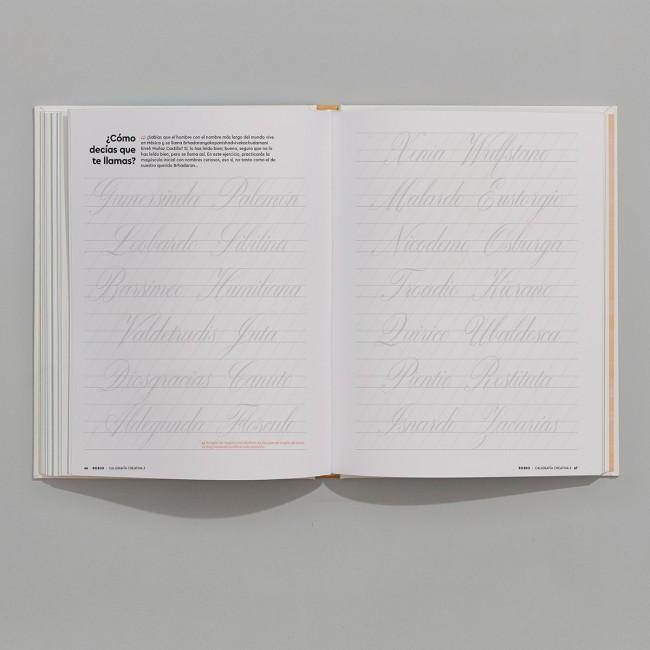 ¿Cómo
decías que
te llamas?
¿Sabías que el hombre con el nombre más largo del mundo vive
en México y se llama
Eireé Muñoz Castillo? Sí, lo has leído bien; bueno, seguro que no lo
has leído bien, pero se llama así. En este ejercicio, practicarás la
mayúscula inicial con nombres curiosos, eso sí, no tanto como el de
nuestro querido Brhadaran...
Gumersinda Palemón
Leobardo Sibilina
Barsimeo Humiliana
Valdetrudis Juta
Diosgracias Canuto
Aldegunda Flósculo
66 BOBO · CALIGRAFÍA CREATIVA 2
Xena Wulfstano
Malardo Eustorgio
Nicodemo Osburga
Troadio Kierano
Quirico Ubaldesca
Piontio Restituta
Isnardo Zacarías
CALIGRAFÍA CREATIVA 2 67